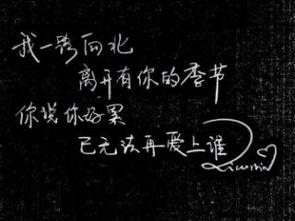 我一路向北
离开有你的季节
你说你好累
已无法再爱上谁